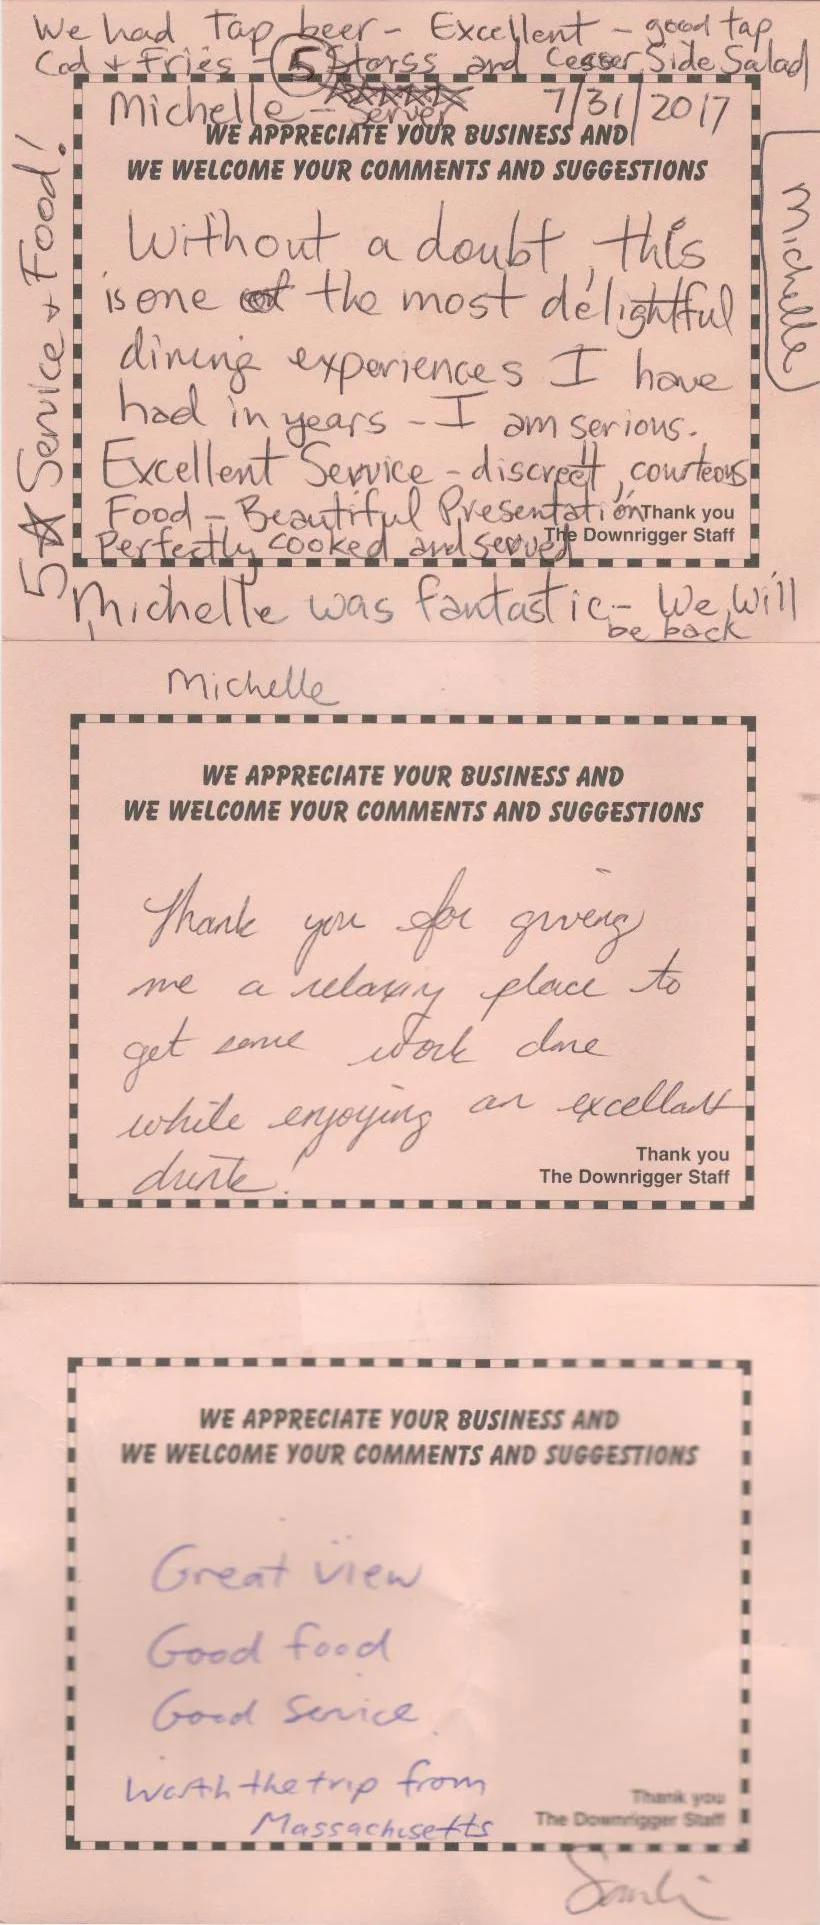 We had Tap beer - Excellent - good tap
Cod + Fries - 5 Starss and Side Salad
Michelle - server 7/31/2017
WE APPRECIATE YOUR BUSINESS AND
WE WELCOME YOUR COMMENTS AND SUGGESTIONS
Michelle
5☆ Service + Food!
Without a doubt, this
is one of the most delightful
dining experiences I have
had in years - I am serious.
Excellent Service - discrett, courteous
Food - Beautiful Presentation,
Perfectly cooked and served
Thank you
The Downrigger Staff
Michelle was fantastic - We will
be back
Michelle
WE APPRECIATE YOUR BUSINESS AND
WE WELCOME YOUR COMMENTS AND SUGGESTIONS
Thank you for giving
me a relaxing place to
get some work done
while enjoying an excellant
drink!
Thank you
The Downrigger Staff
WE APPRECIATE YOUR BUSINESS AND
WE WELCOME YOUR COMMENTS AND SUGGESTIONS
Great view
Good food
Good service
Worth the trip from
Massachusetts
Thank you
The Downrigger Staff